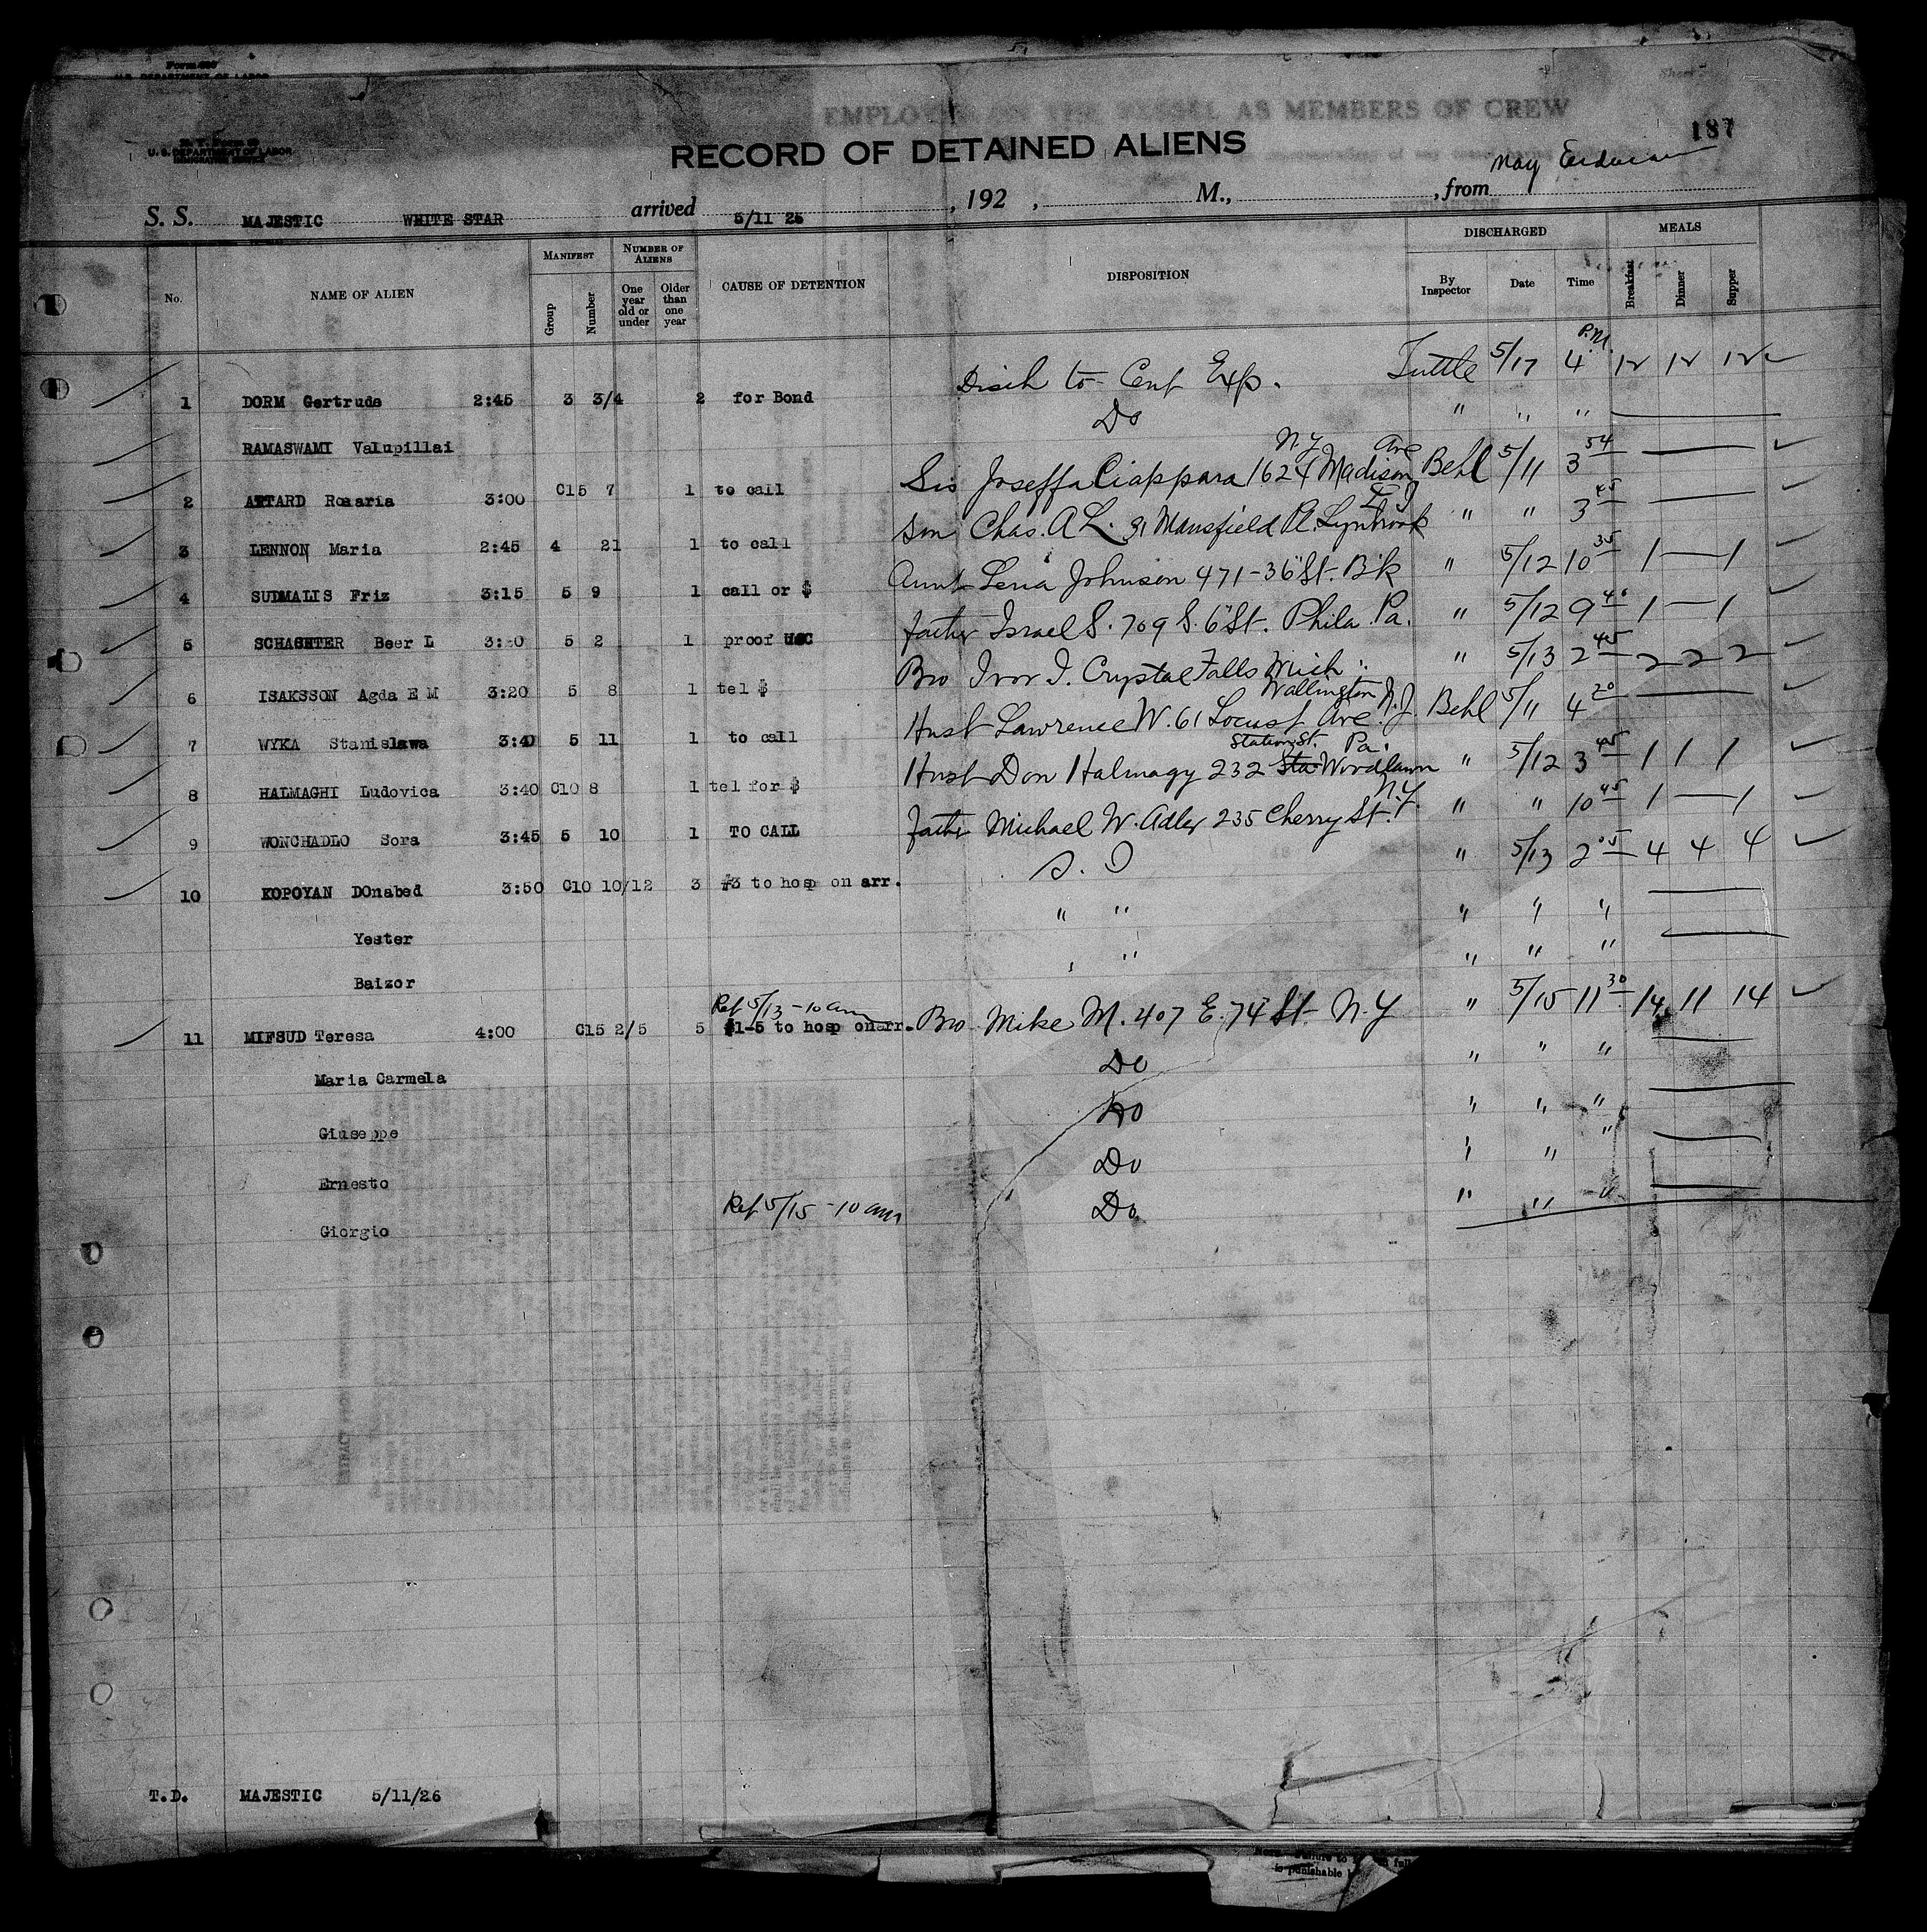 U.S. DEPARTMENT OF LABOR
EMPLOYED ON THE VESSEL AS MEMBERS OF CREW
187
RECORD OF DETAINED ALIENS
S. S. MAJESTIC WHITE STAR arrived 5/11 26, 192 , M., , from May
No. NAME OF ALIEN MANIFEST Group Number NUMBER OF ALIENS One year old or under Older than one year CAUSE OF DETENTION DISPOSITION DISCHARGED By Inspector Date Time MEALS Breakfast Dinner Supper
1 DORM Gertrude 2:45 3 3/4 2 for Bond Disch to Cenf Exp. Tuttle 5/17 4 P.M. 12 12 12
RAMASWAMI Valupillai Do " " "
2 ATTARD Rosaria 3:00 C15 7 1 to call Sis Joseffa Ciappara 1624 Madison Ave N.Y. Behl 5/11 3 54
3 LENNON Maria 2:45 4 21 1 to call Son Chas. A L. 31 Mansfield Pl. Lynbrook L I " " 3 45
4 SUDMALIS Friz 3:15 5 9 1 call or $ Aunt Lena Johnson 471-36 St. B'k " 5/12 10 35 1 — 1
5 SCHACHTER Beer L 3:20 5 2 1 proof USC father Israel S. 709 S. 6 St. Phila Pa. " 5/12 9 40 1 — 1
6 ISAKSSON Agda E M 3:20 5 8 1 tel $ Bro Ivor I. Crystal Falls Mich. " 5/13 2 45 2 2 2
7 WYKA Stanislawa 3:40 5 11 1 to call Husb Lawrence W. 61 Locust Ave. Wallington N.J. Behl 5/11 4 20
8 HALMAGHI Ludovica 3:40 C10 8 1 tel for $ Husb Don Halmagy 232 Sta Station St. Woodlawn Pa. " 5/12 3 45 1 1 1
9 WONCHADLO Sora 3:45 5 10 1 TO CALL father Michael W. Adler 235 Cherry St. N.Y. " " 10 45 1 — 1
10 KOPOYAN DOnabed 3:50 C10 10/12 3 #3 to hosp on arr. S. I " 5/13 2 05 4 4 4
Yester " " " " "
Baizor " " " " "
11 MIFSUD Teresa 4:00 C15 2/5 5 Ref 5/13 - 10 am #1-5 to hosp on arr. Bro Mike M. 407 E. 74 St N.Y " 5/15 11 30 14 11 14
Maria Carmela Do " " "
Giuseppe Do " " "
Ernesto Do " " "
Giorgio Ref 5/15 - 10 am Do " " "
T.D. MAJESTIC 5/11/26
is punishable